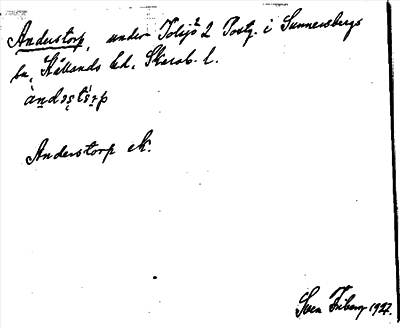 Anderstorp, under Tolsjö 2 Postg. i Sunnersbergs
sn, Kållands hd, Skarab. l.
àndəʂtɔ̀rp
Anderstorp ek.
Sven Friberg 1927.